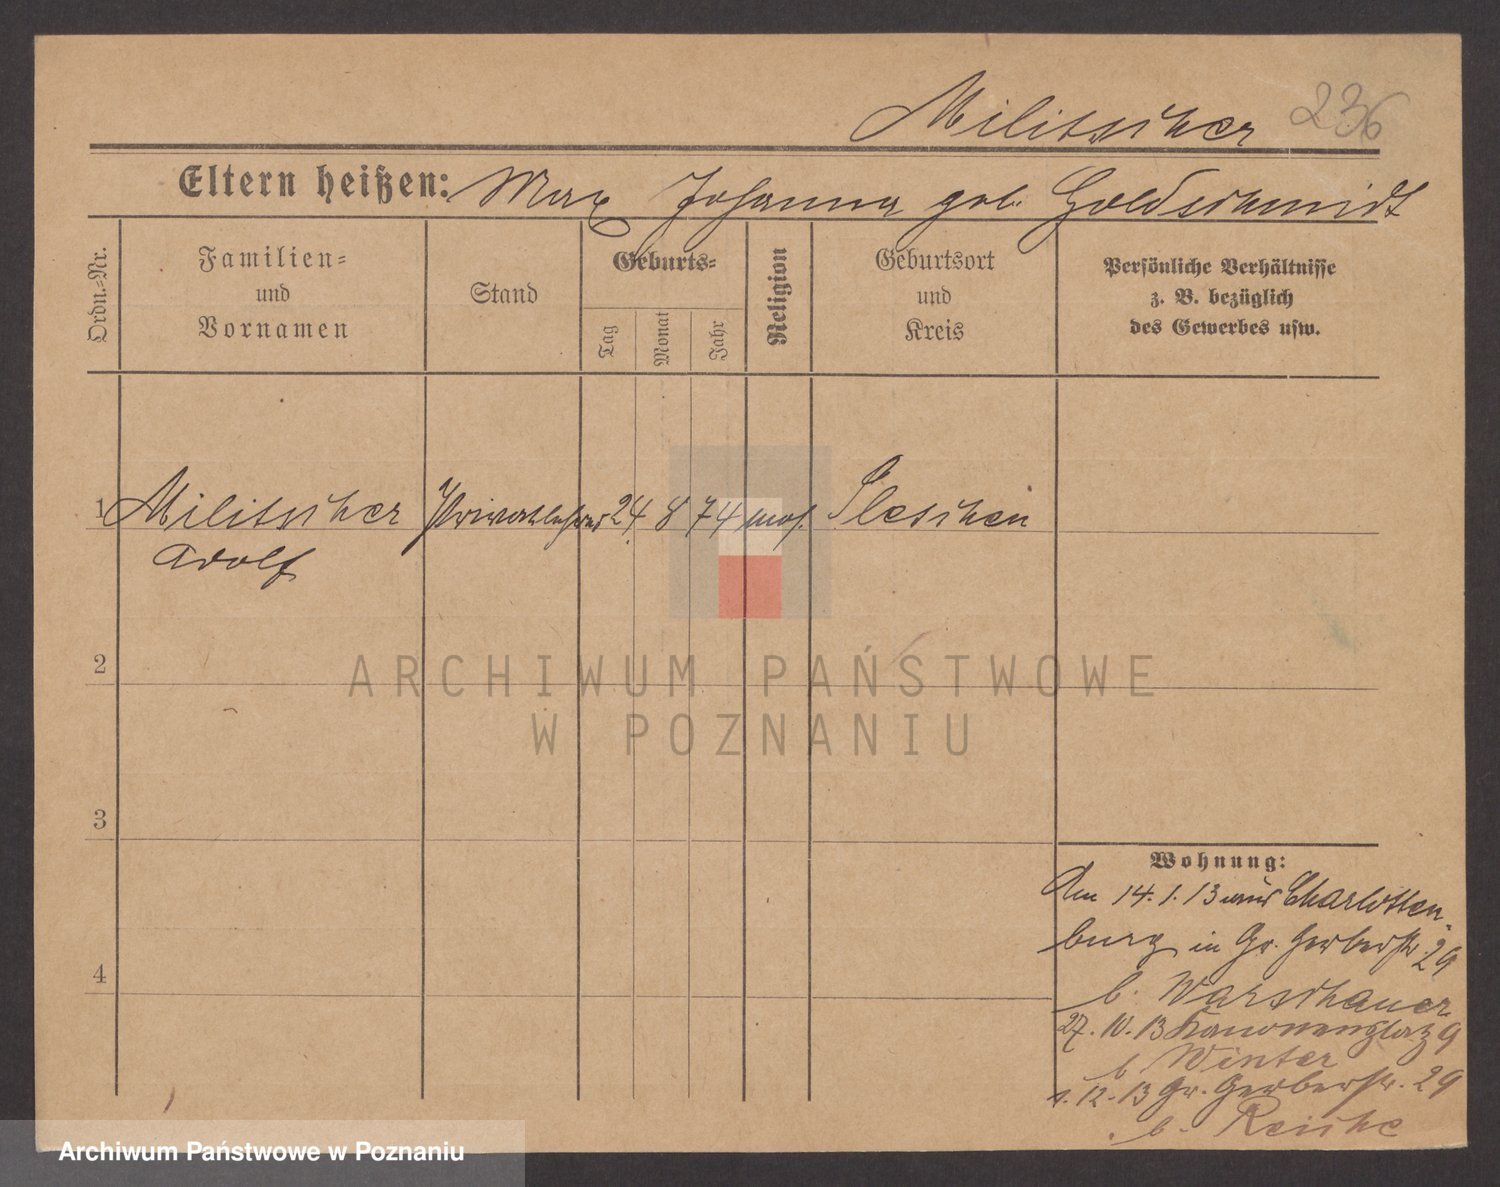 Militscher 236
Eltern heißen: Max Johanna geb. Goldschmidt
Ordn.-Nr.
Familien-
und
Vornamen
Stand
Geburts-
Tag
Monat
Jahr
Religion
Geburtsort
und
Kreis
Persönliche Verhältnisse
z. B. bezüglich
des Gewerbes usw.
1 Militscher Privatlehrer 24 8 74 mos. Pleschen
Adolf
2
3
4
Wohnung:
Am 14. 1. 13 aus Charlotten-
burg in Gr. Gerberstr. 29
b. Warschauer
27. 10. 13 Kanonenplatz 9
b. Winter
1. 12. 13 Gr. Gerberstr. 29
b. Reiche
ARCHIWUM PAŃSTWOWE
W POZNANIU
Archiwum Państwowe w Poznaniu